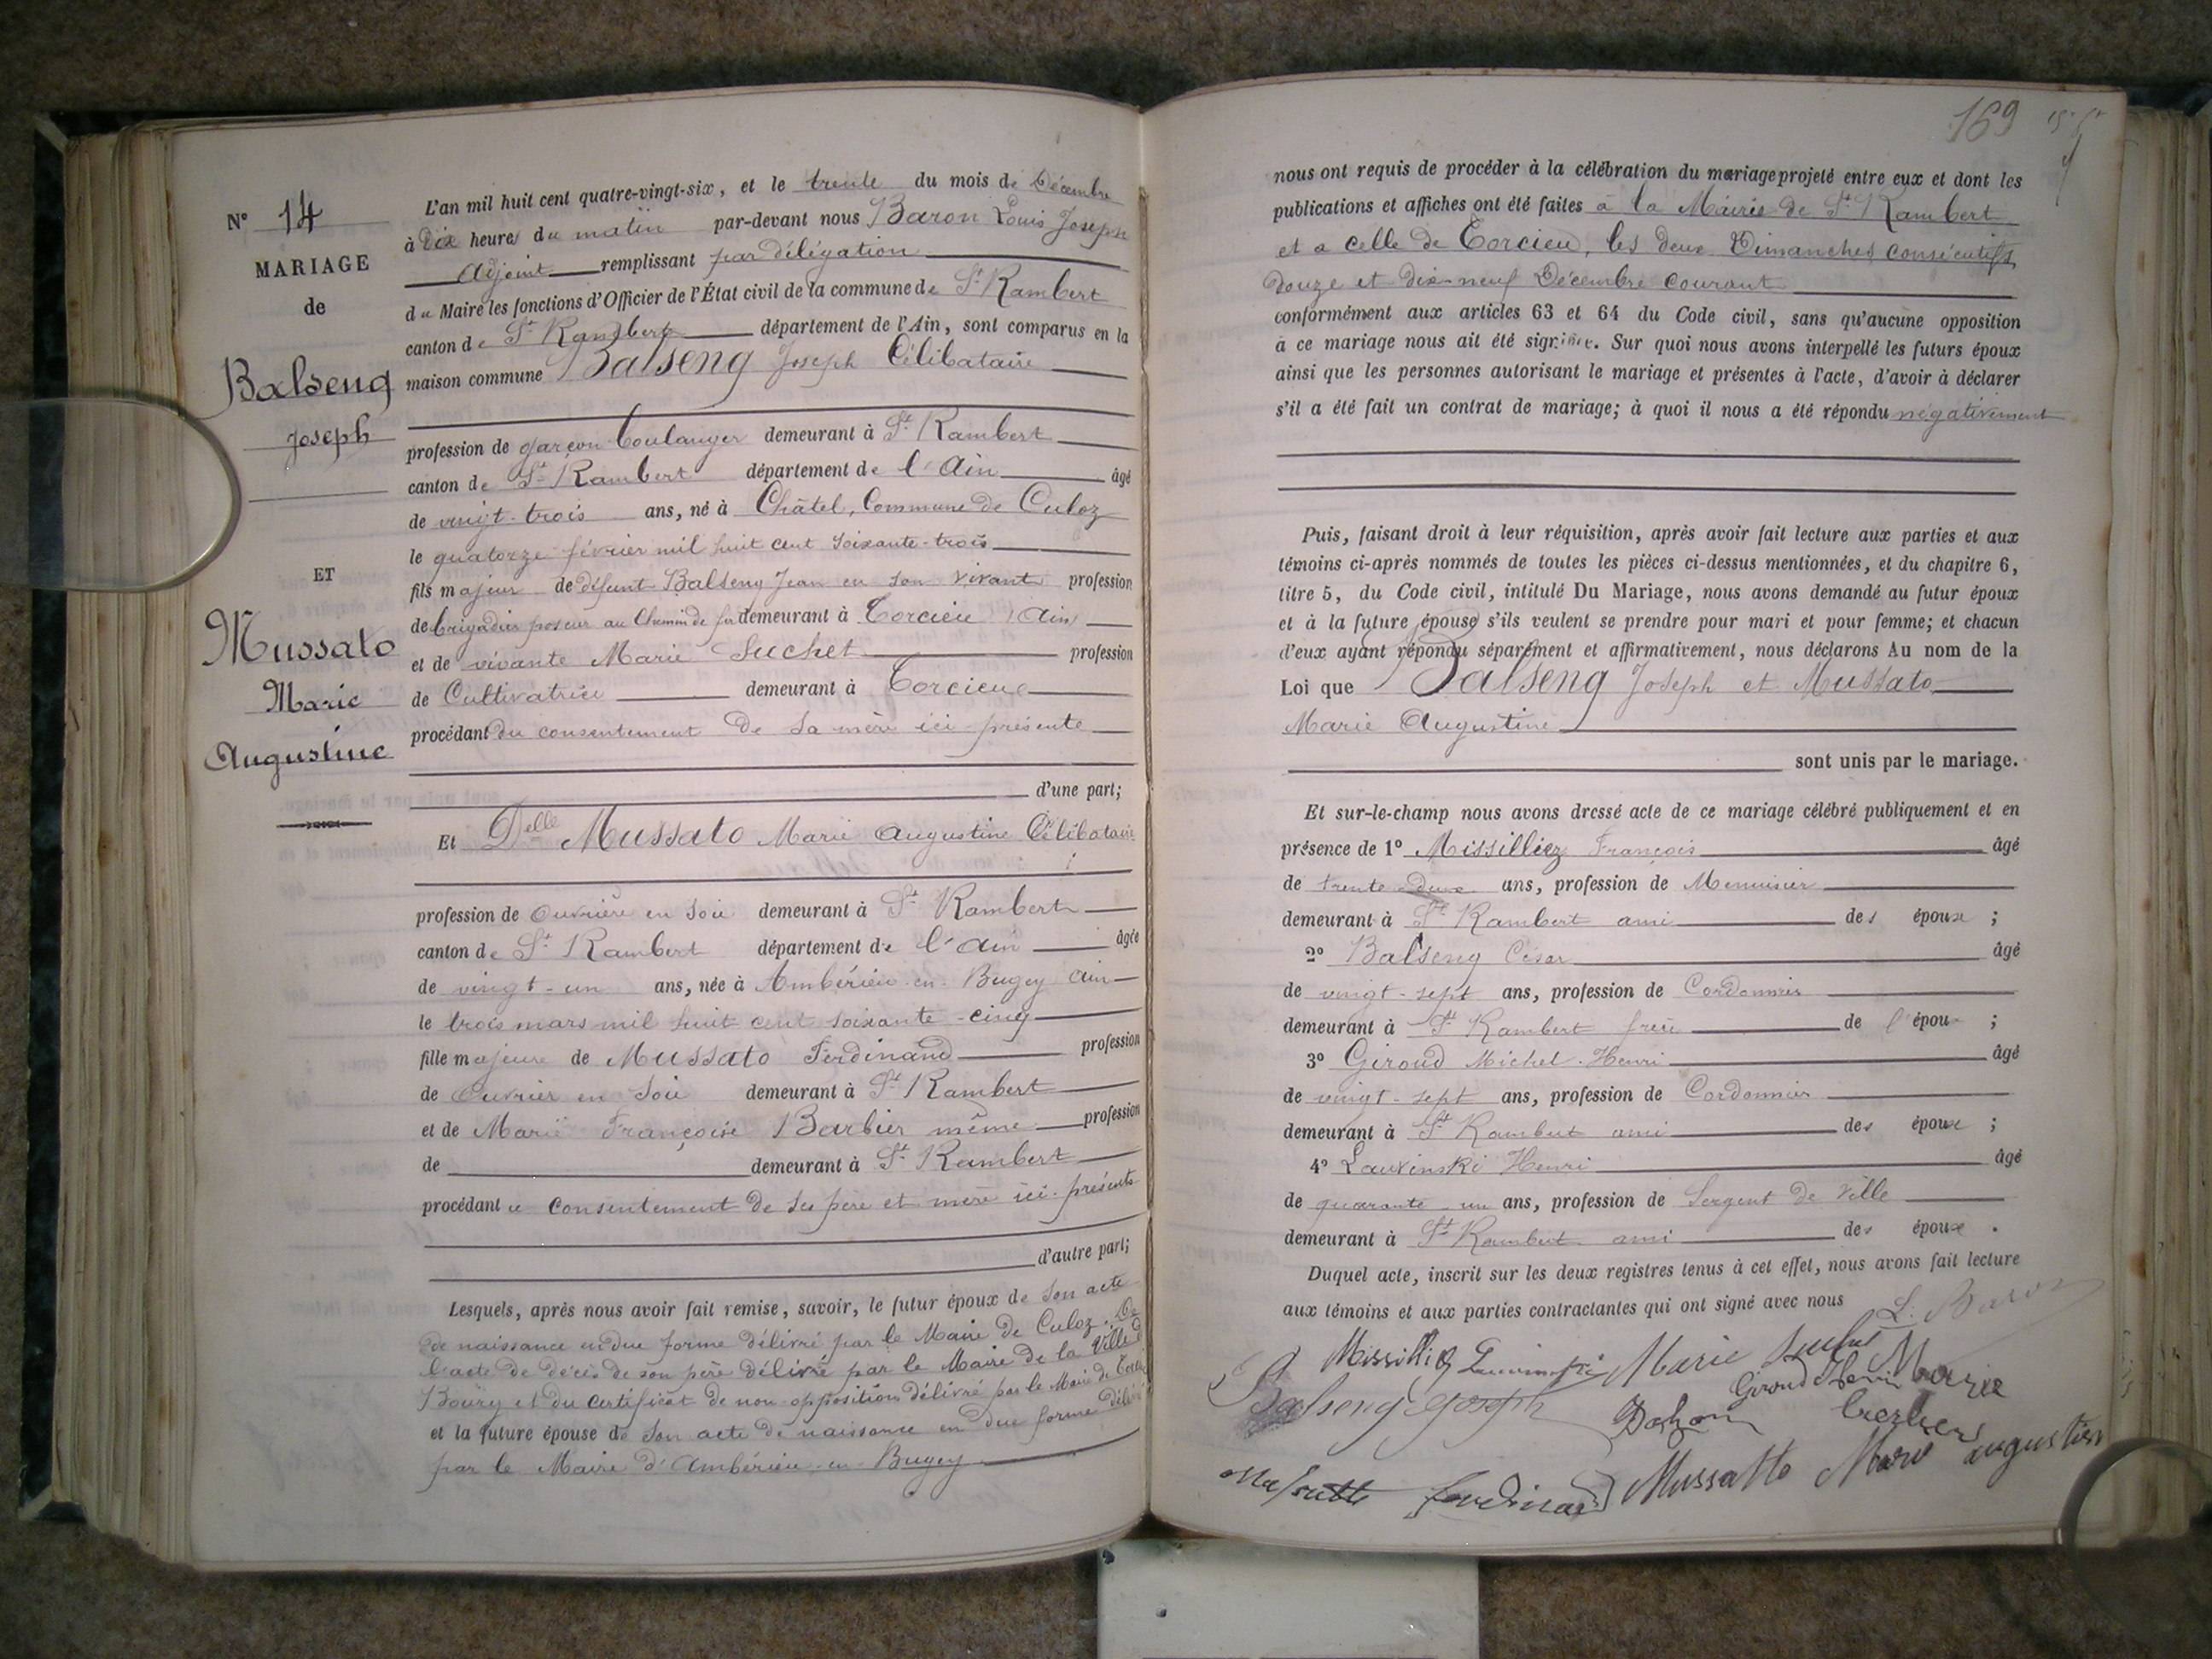 N° 14
MARIAGE
de
Balseng
Joseph
ET
Mussato
Marie
Augustine
L'an mil huit cent quatre-vingt-six, et le trente du mois de Décembre
à Dix heures du matin par-devant nous Baron Louis Joseph
Adjoint remplissant par délégation
du Maire les fonctions d'Officier de l'État civil de la commune de St Rambert
canton de St Rambert département de l'Ain, sont comparus en la
maison commune Balseng Joseph Célibataire
profession de garçon boulanger demeurant à St Rambert
canton de St Rambert département de l'Ain âgé
de vingt-trois ans, né à Châtel, Commune de Culoz
le quatorze février mil huit cent soixante-trois
fils majeur de défunt Balseng Jean en son vivant profession
de brigadier poseur au Chemin de fer demeurant à Torcieu (Ain)
et de vivante Marie Suchet profession
de Cultivatrice demeurant à Torcieu
procédant du consentement de sa mère ici présente
d'une part;
Et Delle Mussato Marie Augustine Célibataire
profession de Ouvrière en Soie demeurant à St Rambert
canton de St Rambert département de l'Ain âgée
de vingt-un ans, née à Ambérieu-en-Bugey Ain
le trois mars mil huit cent soixante-cinq
fille majeure de Mussato Ferdinand profession
de Ouvrier en Soie demeurant à St Rambert
et de Marie Françoise Barbier même profession
de demeurant à St Rambert
procédant consentement de ses père et mère ici présents
d'autre part;
Lesquels, après nous avoir fait remise, savoir, le futur époux de son acte
de naissance en due forme délivré par le Maire de Culoz, De
l'acte de décès de son père délivré par le Maire de la Ville de
Bourg et du certificat de non-opposition délivré par le Maire de
et la future épouse de son acte de naissance en due forme délivré
par le Maire d'Ambérieu-en-Bugey
169
nous ont requis de procéder à la célébration du mariage projeté entre eux et dont les
publications et affiches ont été faites à la Mairie de St Rambert
et à celle de Torcieu, les deux Dimanches consécutifs
douze et dix-neuf Décembre courant
conformément aux articles 63 et 64 du Code civil, sans qu'aucune opposition
à ce mariage nous ait été signifiée. Sur quoi nous avons interpellé les futurs époux
ainsi que les personnes autorisant le mariage et présentes à l'acte, d'avoir à déclarer
s'il a été fait un contrat de mariage; à quoi il nous a été répondu négativement
Puis, faisant droit à leur réquisition, après avoir fait lecture aux parties et aux
témoins ci-après nommés de toutes les pièces ci-dessus mentionnées, et du chapitre 6,
titre 5, du Code civil, intitulé Du Mariage, nous avons demandé au futur époux
et à la future épouse s'ils veulent se prendre pour mari et pour femme; et chacun
d'eux ayant répondu séparément et affirmativement, nous déclarons Au nom de la
Loi que Balseng Joseph et Mussato
Marie Augustine
sont unis par le mariage.
Et sur-le-champ nous avons dressé acte de ce mariage célébré publiquement et en
présence de 1° Missilliez François âgé
de trente-deux ans, profession de Menuisier
demeurant à St Rambert ami des époux ;
2° Balseng César âgé
de vingt-sept ans, profession de Cordonnier
demeurant à St Rambert frère de l'époux ;
3° Giroud Michel Henri âgé
de vingt-sept ans, profession de Cordonnier
demeurant à St Rambert ami des époux ;
4° Lauvinski Henri âgé
de quarante-un ans, profession de Sergent de Ville
demeurant à St Rambert ami des époux .
Duquel acte, inscrit sur les deux registres tenus à cet effet, nous avons fait lecture
aux témoins et aux parties contractantes qui ont signé avec nous L. Baron
Missilliez Lauvinski Marie Suchet
Balseng Joseph Giroud Henri Marie
ferdinand Mussatto Marie augustine